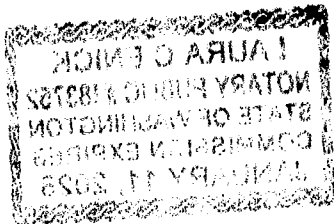 LAURA C EMICK
NOTARY PUBLIC #183752
STATE OF WASHINGTON
COMMISSION EXPIRES
JANUARY 11, 2026